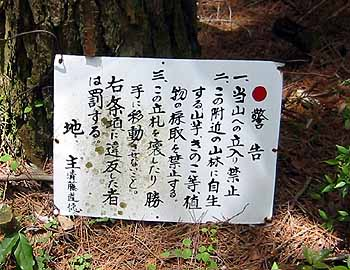 警告
一、当山への立入り禁止
二、この附近の山林に自生
する山芋、きのこ等植
物の採取を禁止する
三、この立札を壊したり勝
手に移動させないこと。
右条項に違反した者
は罰する。
地主